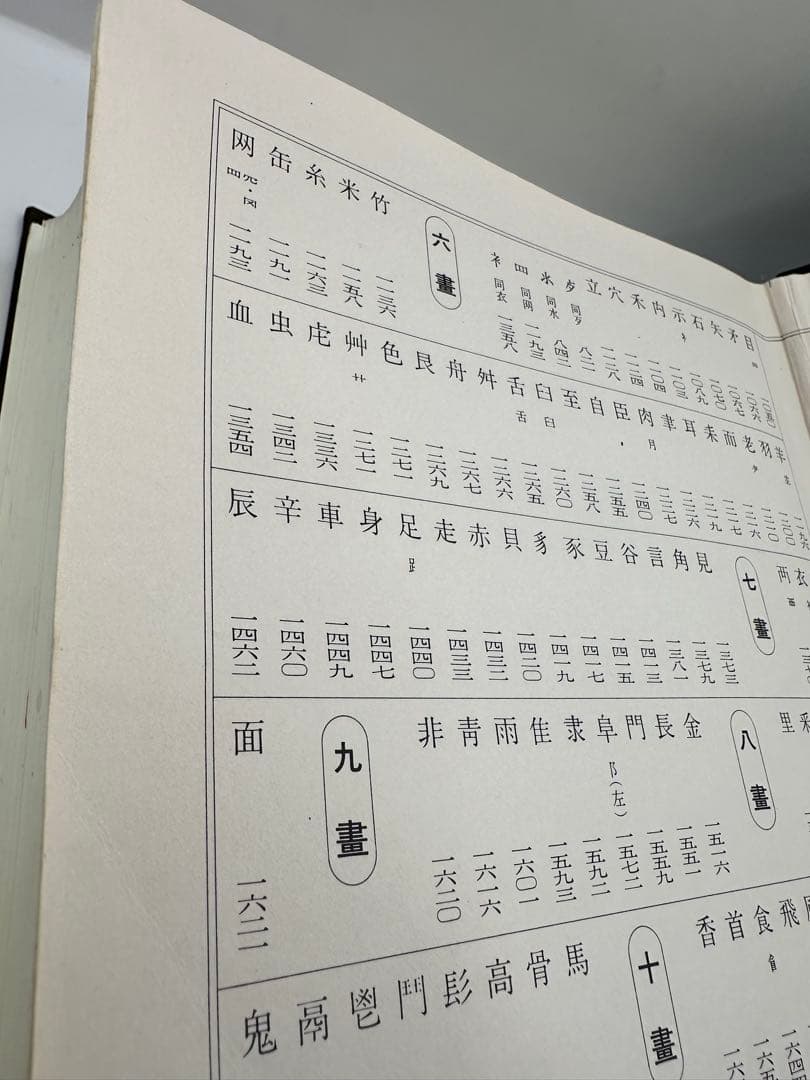 目
矛 一〇六六
矢 一〇六七
石 一〇七〇
示 礻 一〇八九
禸 一一〇三
禾 一一〇四
穴 一一二四
立
歺 同歹 八二二
氺 同水 八四二
罒 同网 一一九三
衤 同衣 一三五八
六畫
竹 一一三六
米 一一五八
糸 一一六三
缶 一一九一
网 罒・㓁 一一九三
羊
羽
老 耂
而
耒
耳
聿
肉 月
臣
自
至
臼
舌
舛 一二六六
舟 一二六七
艮 一二六九
色 一二七一
艸 艹 一二七一
虍 一三三六
虫 一三四二
血 一三五四
衣
襾 覀
七畫
見 一三七三
角 一三七九
言 一三八一
谷 一四一三
豆 一四一五
豕 一四一七
豸 一四一九
貝 一四二〇
赤 一四三二
走 一四三三
足 𧾷 一四四〇
身 一四四七
車 一四四九
辛 一四六〇
辰 一四六二
釆
里
八畫
金 一五一六
長 一五五一
門 一五五九
阜 阝(左) 一五七二
隶 一五九二
隹 一五九三
雨 一六〇一
靑 一六一六
非 一六二〇
九畫
面 一六二一
飛
食 飠
首
香
十畫
馬
骨
高
髟
鬥
鬯
鬲
鬼